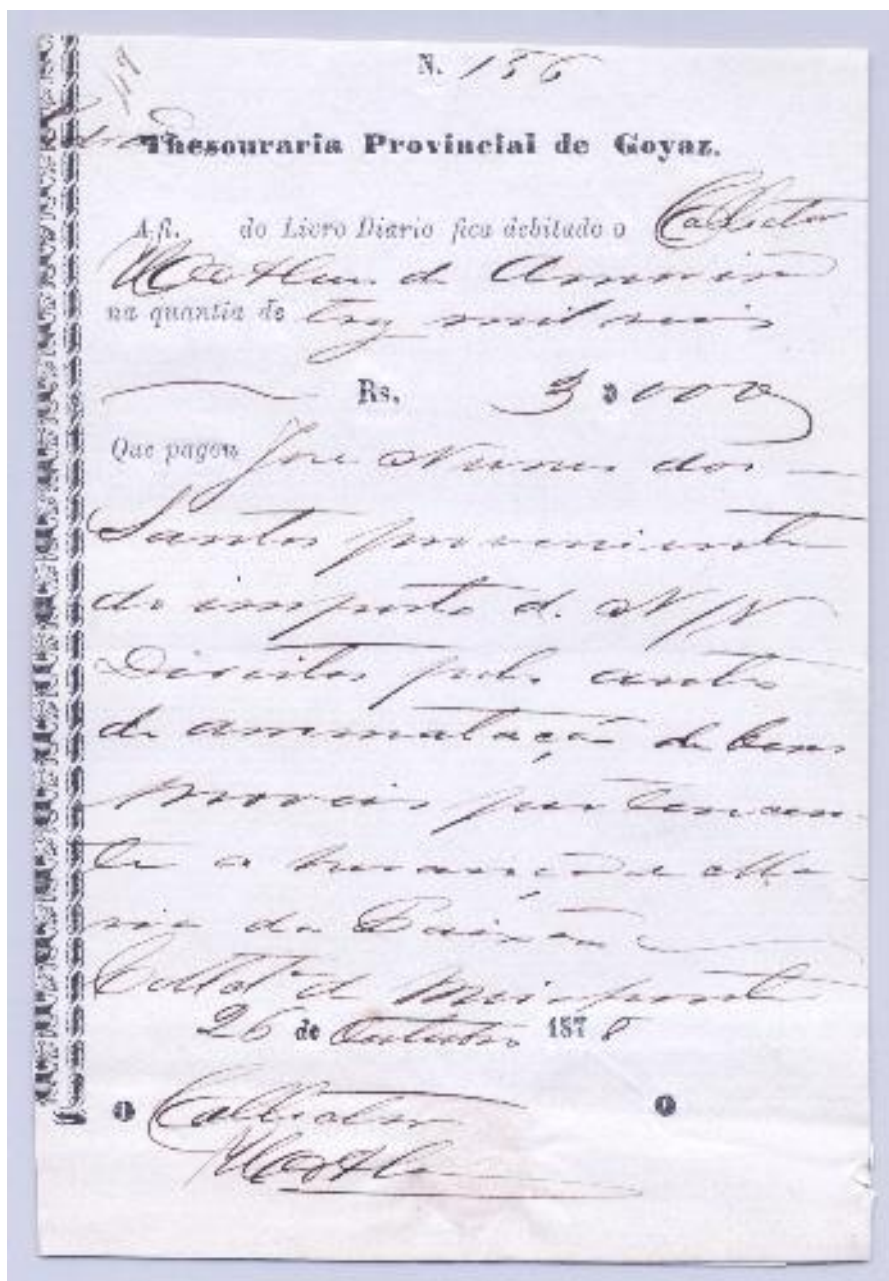 N. 156
Thesouraria Provincial de Goyaz.
A fl. do Livro Diario fica debitado o Collector
de Amorim
na quantia de trez mil reis
Rs. 3 $ 000
Que pagou Jose Nunes dos
Santos proveniente
do imposto d. N/N
Direitos pelo auto
de arrematação de bens
moveis pertencen
te a herança de Ma
ria da Paixão
Collet.ª de Meiaponte
26 de Outubro 1878
O Collector O